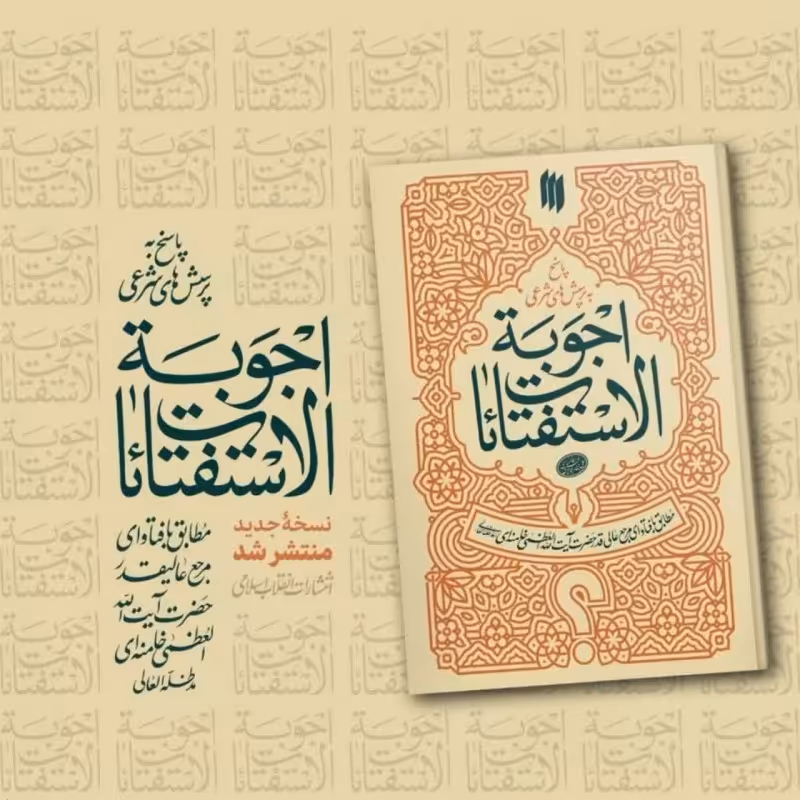 پاسخ به
پرسش‌های شرعی
اجوبة
الاستفتائات
مطابق با فتاوای
مرجع عالیقدر
حضرت آیت الله
العظمی خامنه‌ای
مدظله العالی
نسخهٔ جدید
منتشر شد
انتشارات انقلاب اسلامی
پاسخ
به پرسش‌های شرعی
اجوبة
الاستفتائات
مطابق با فتاوای مرجع عالی قدر حضرت آیت الله العظمی خامنه‌ای
؟